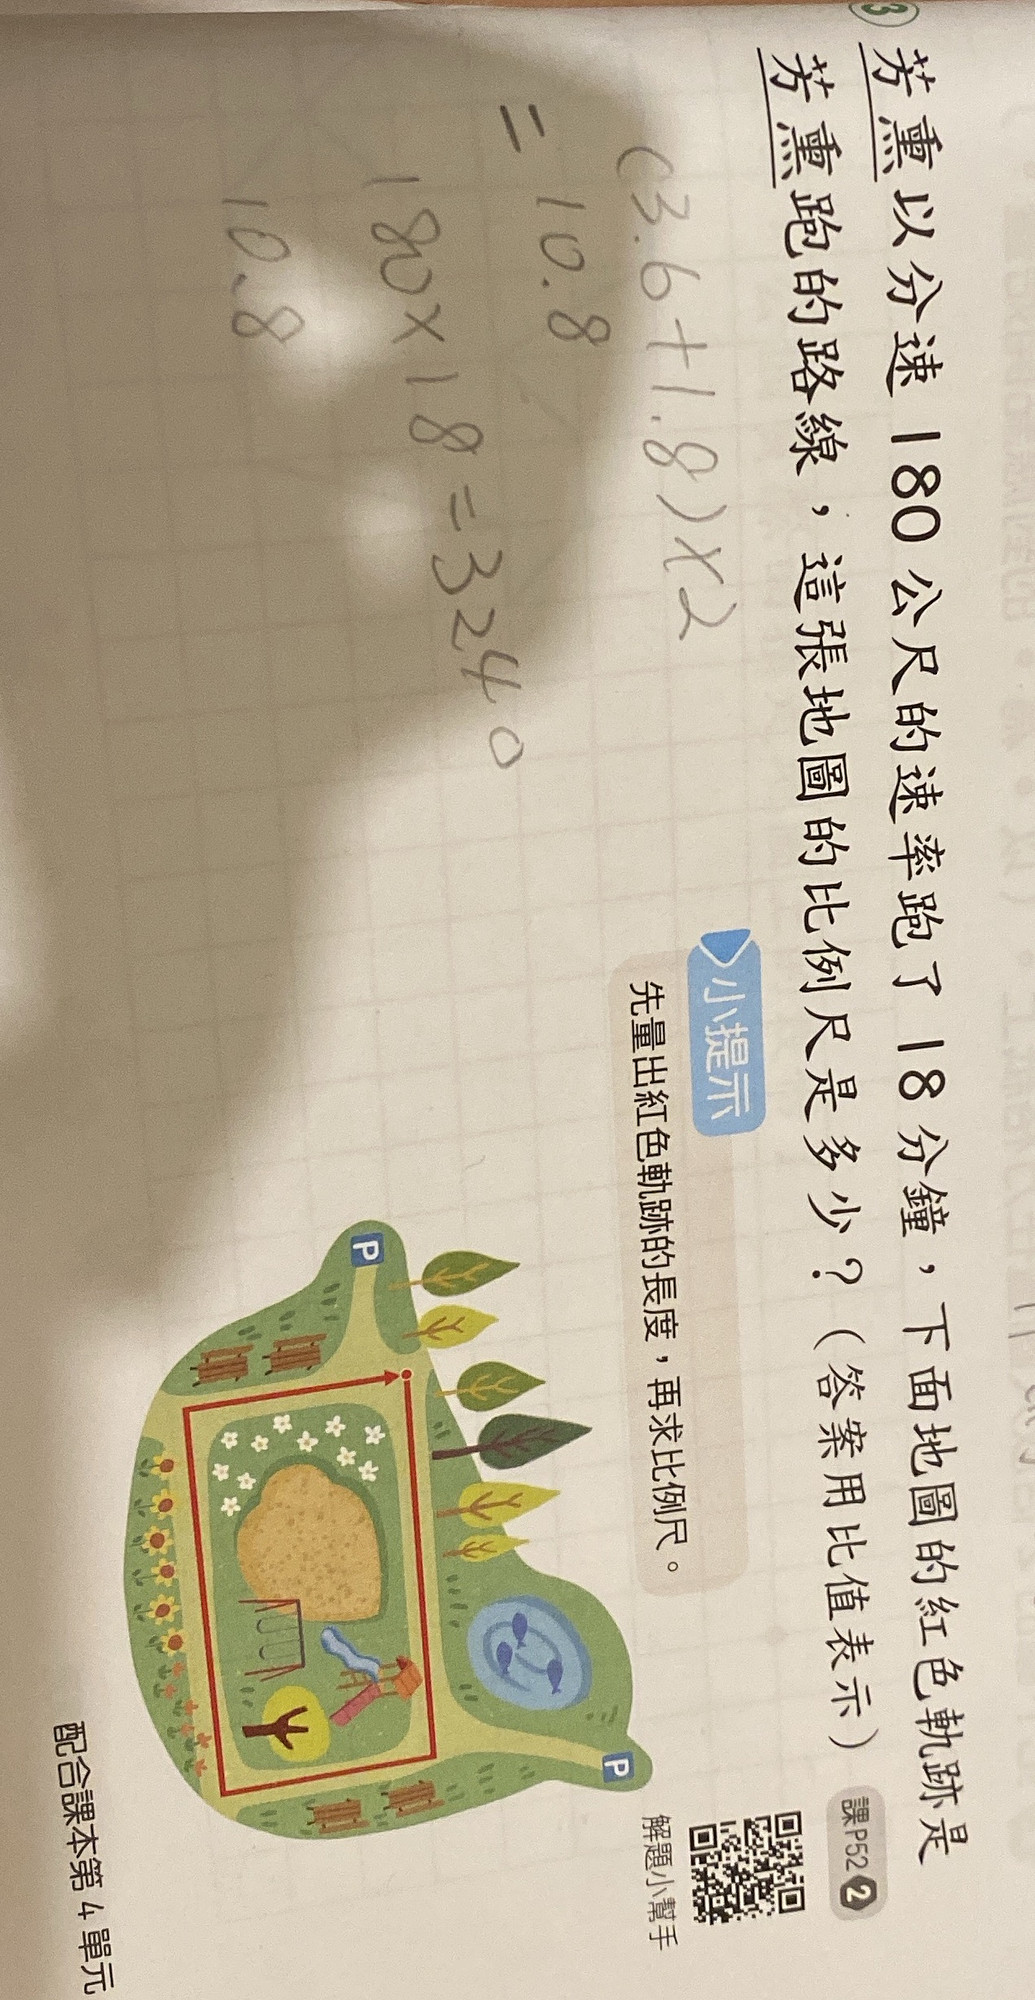 3
芳熏以分速 180 公尺的速率跑了 18 分鐘，下面地圖的紅色軌跡是
芳熏跑的路線，這張地圖的比例尺是多少？（答案用比值表示）
課P52 2
小提示
先量出紅色軌跡的長度，再求比例尺。
解題小幫手
(3.6+1.8)×2
=10.8
180×18=3240
10.8
P
P
配合課本第 4 單元